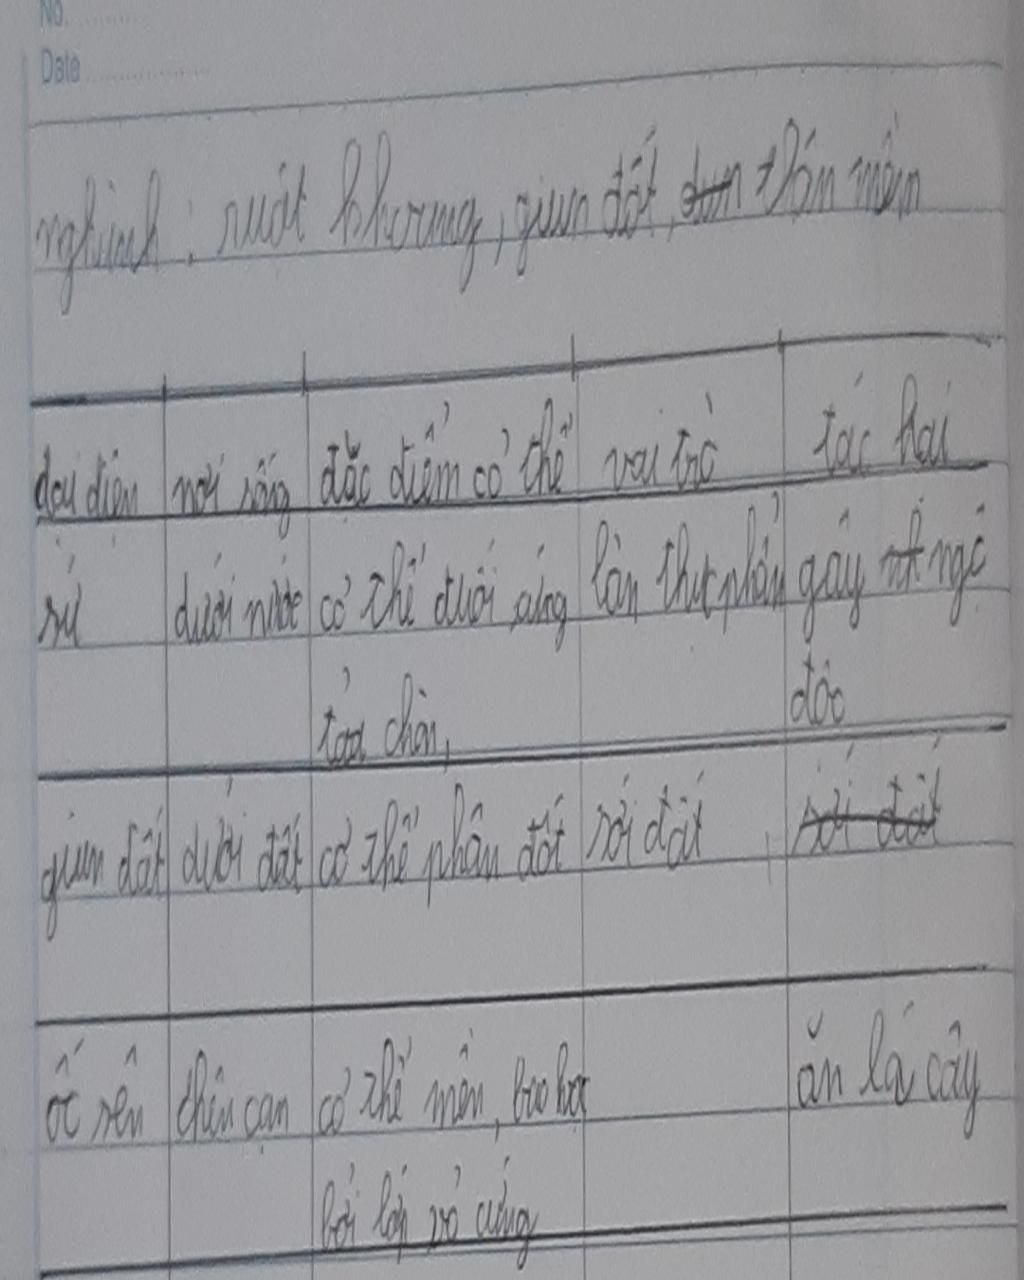 No.
Date
nghành : ruột khoang, giun đất, thân mềm
đại diện nơi sống đặc điểm cơ thể vai trò tác hại
sứ dưới nước cơ thể đuôi ứng làm thực phẩm gây ngộ
tỏa chòn, độc
giun đất dưới đất cơ thể phân đốt xới đất
ốc sên trên cạn cơ thể mền, bao bọc ăn lá cây
bởi lớp vỏ cứng